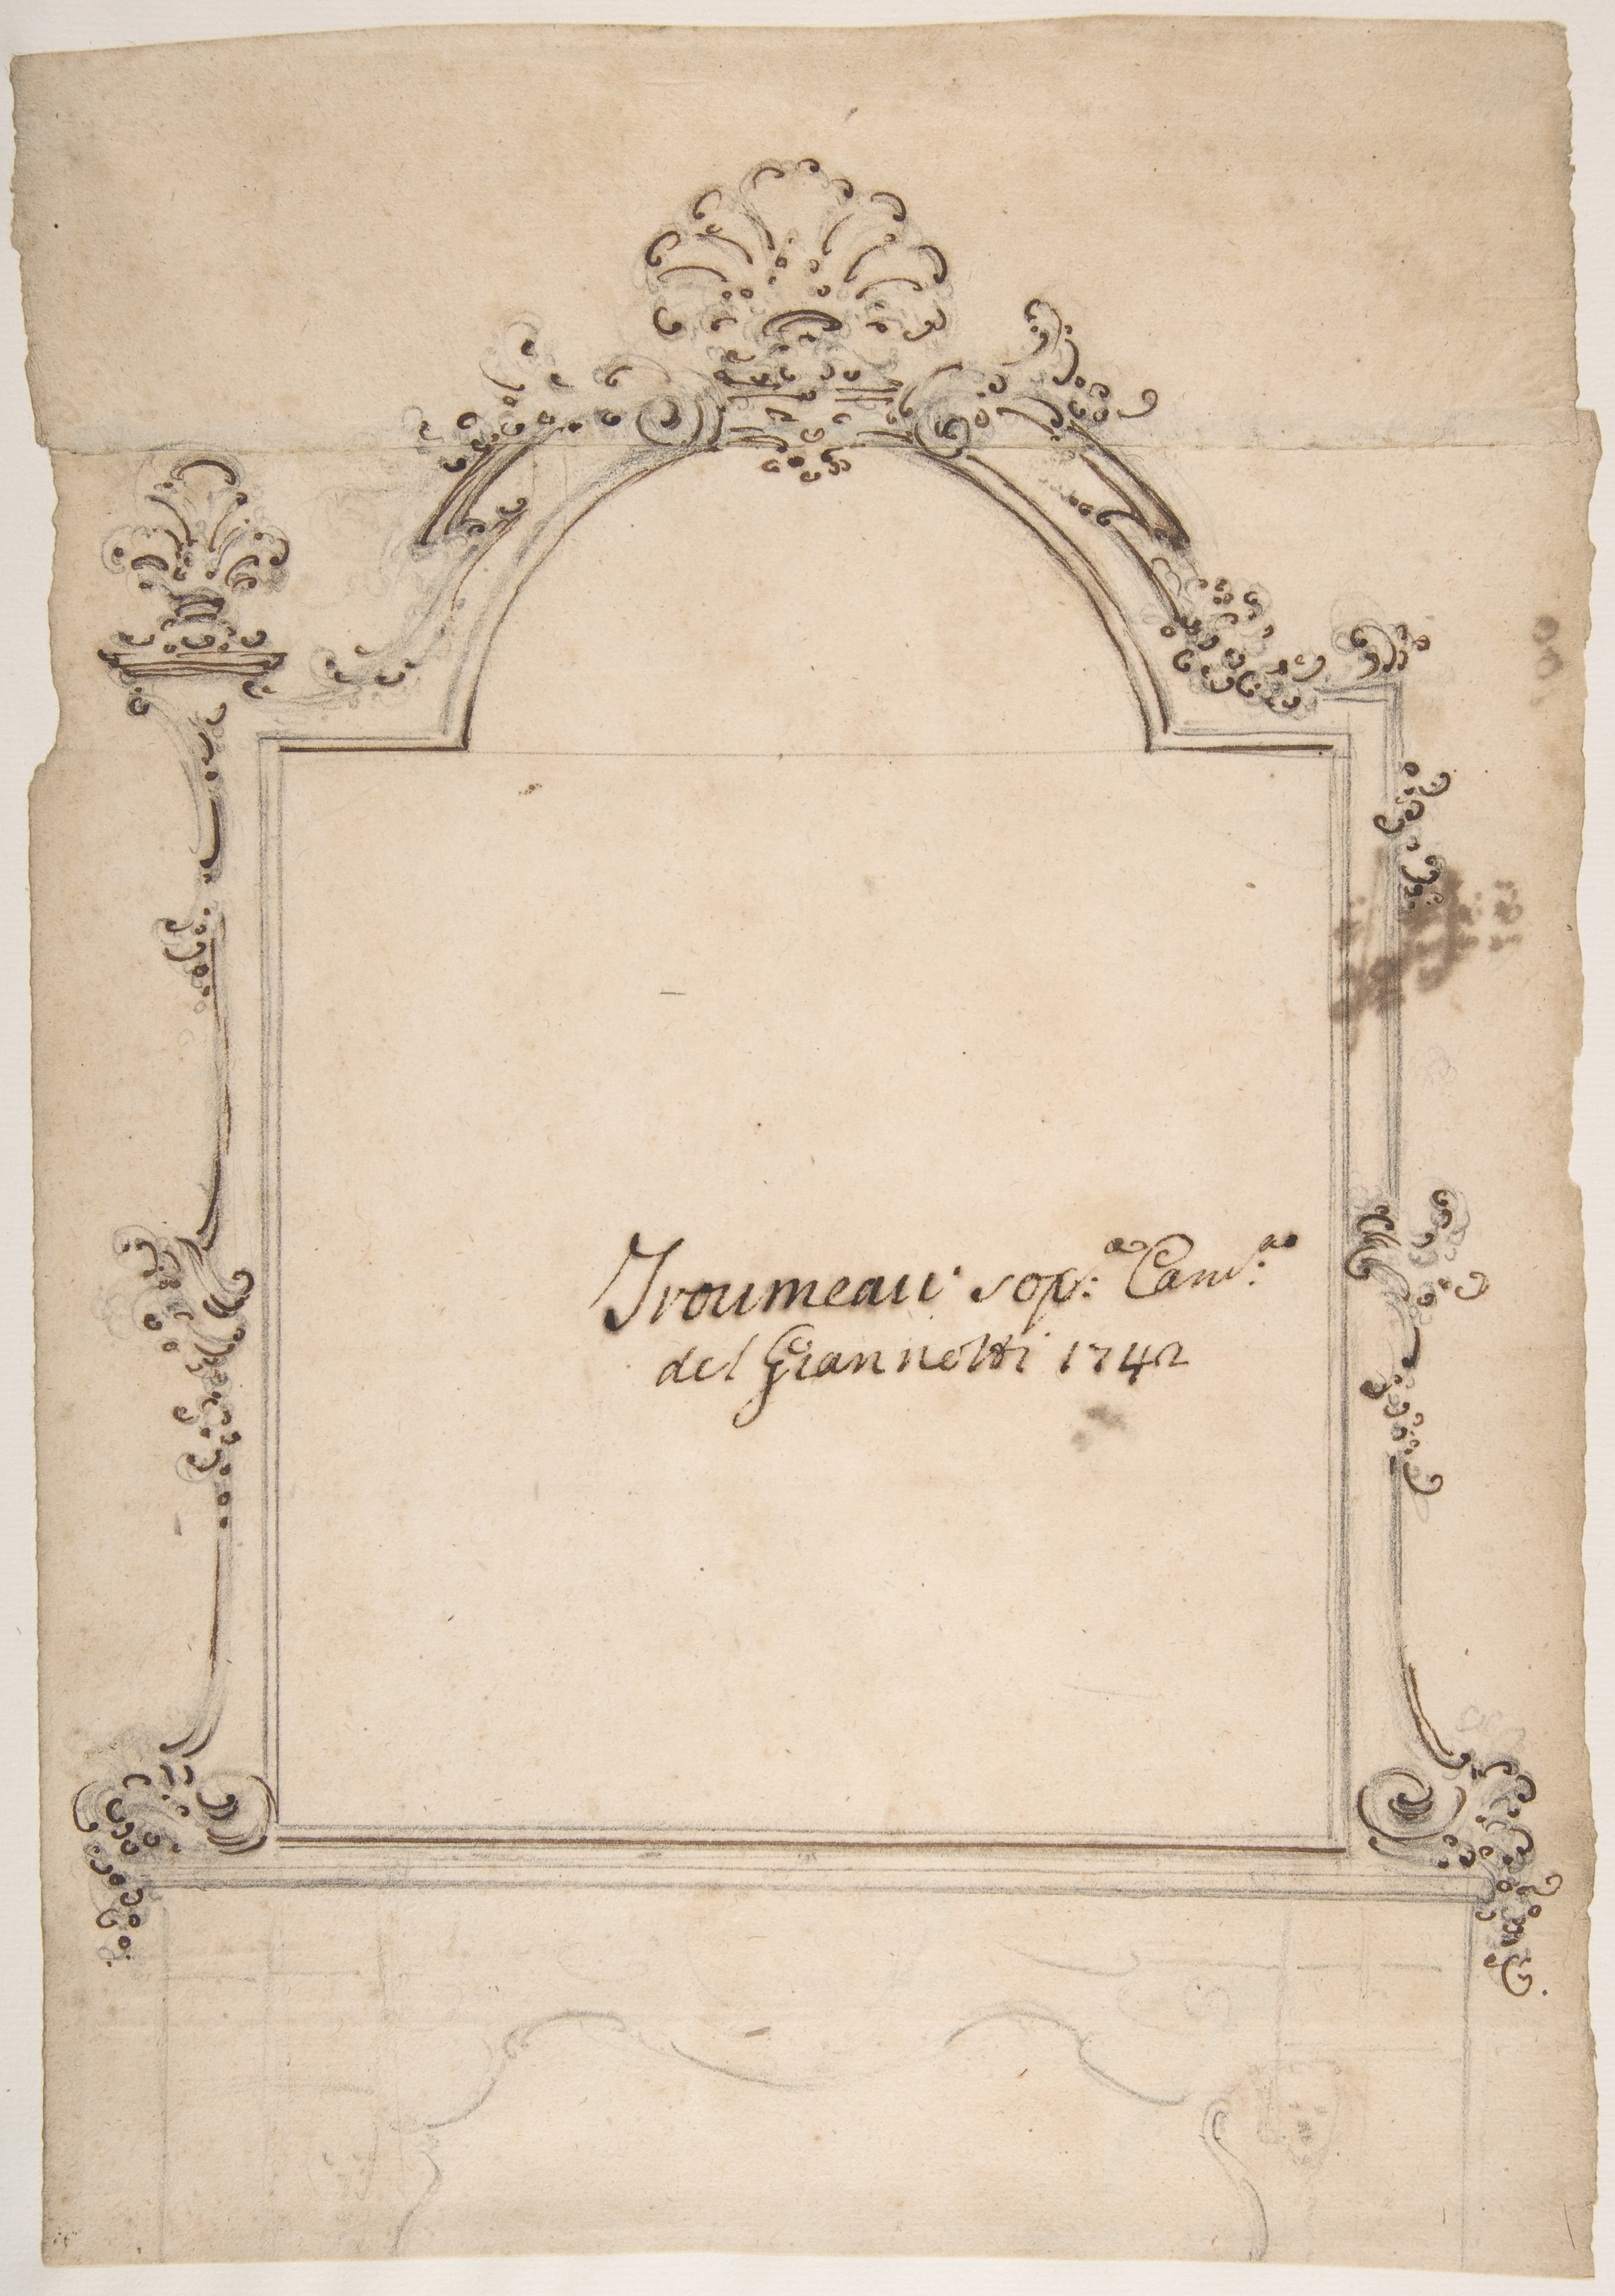 Troumeau sop.ª Cam.ª
del Giannotti 1742